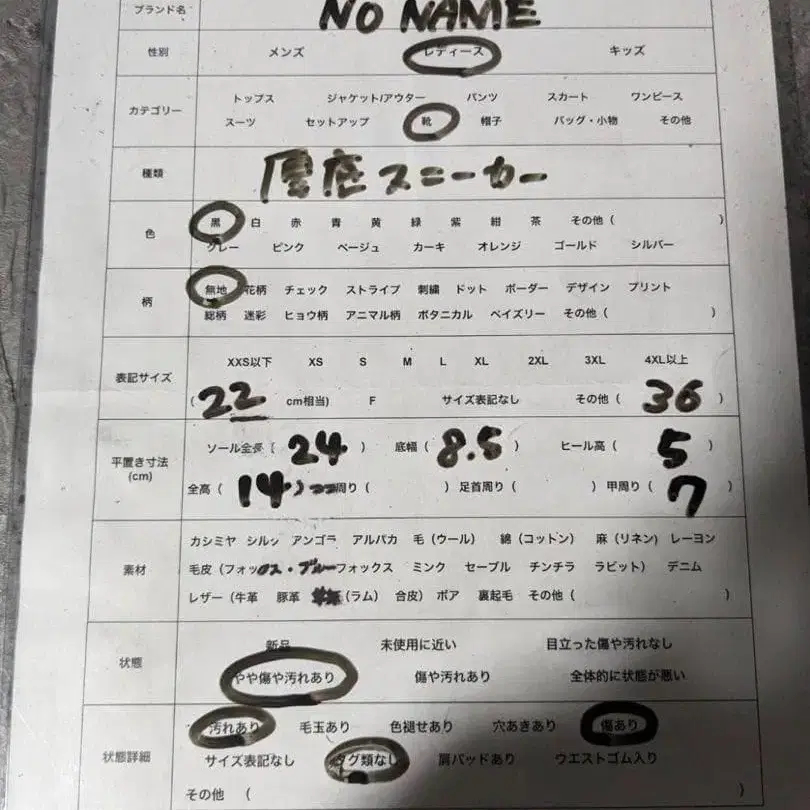 ブランド名 NO NAME
性別 メンズ レディース キッズ
カテゴリー トップス ジャケット/アウター パンツ スカート ワンピース
スーツ セットアップ 靴 帽子 バッグ・小物 その他
種類 厚底スニーカー
色 黒 白 赤 青 黄 緑 紫 紺 茶 その他 ( )
グレー ピンク ベージュ カーキ オレンジ ゴールド シルバー
柄 無地 花柄 チェック ストライプ 刺繍 ドット ボーダー デザイン プリント
総柄 迷彩 ヒョウ柄 アニマル柄 ボタニカル ペイズリー その他 ( )
表記サイズ XXS以下 XS S M L XL 2XL 3XL 4XL以上
( 22 cm相当) F サイズ表記なし その他 ( 36 )
平置き寸法 (cm) ソール全長 ( 24 ) 底幅 ( 8.5 ) ヒール高 ( 5 )
全高 ( 14 ) 周り ( ) 足首周り ( ) 甲周り ( 7 )
素材 カシミヤ シルク アンゴラ アルパカ 毛 (ウール) 綿 (コットン) 麻 (リネン) レーヨン
毛皮 (フォックス・ブルーフォックス ミンク セーブル チンチラ ラビット) デニム
レザー (牛革 豚革 (ラム) 合皮) ボア 裏起毛 その他 ( )
状態 新品 未使用に近い 目立った傷や汚れなし
やや傷や汚れあり 傷や汚れあり 全体的に状態が悪い
状態詳細 汚れあり 毛玉あり 色褪せあり 穴あきあり 傷あり
サイズ表記なし タグ類なし 肩パッドあり ウエストゴム入り
その他 (